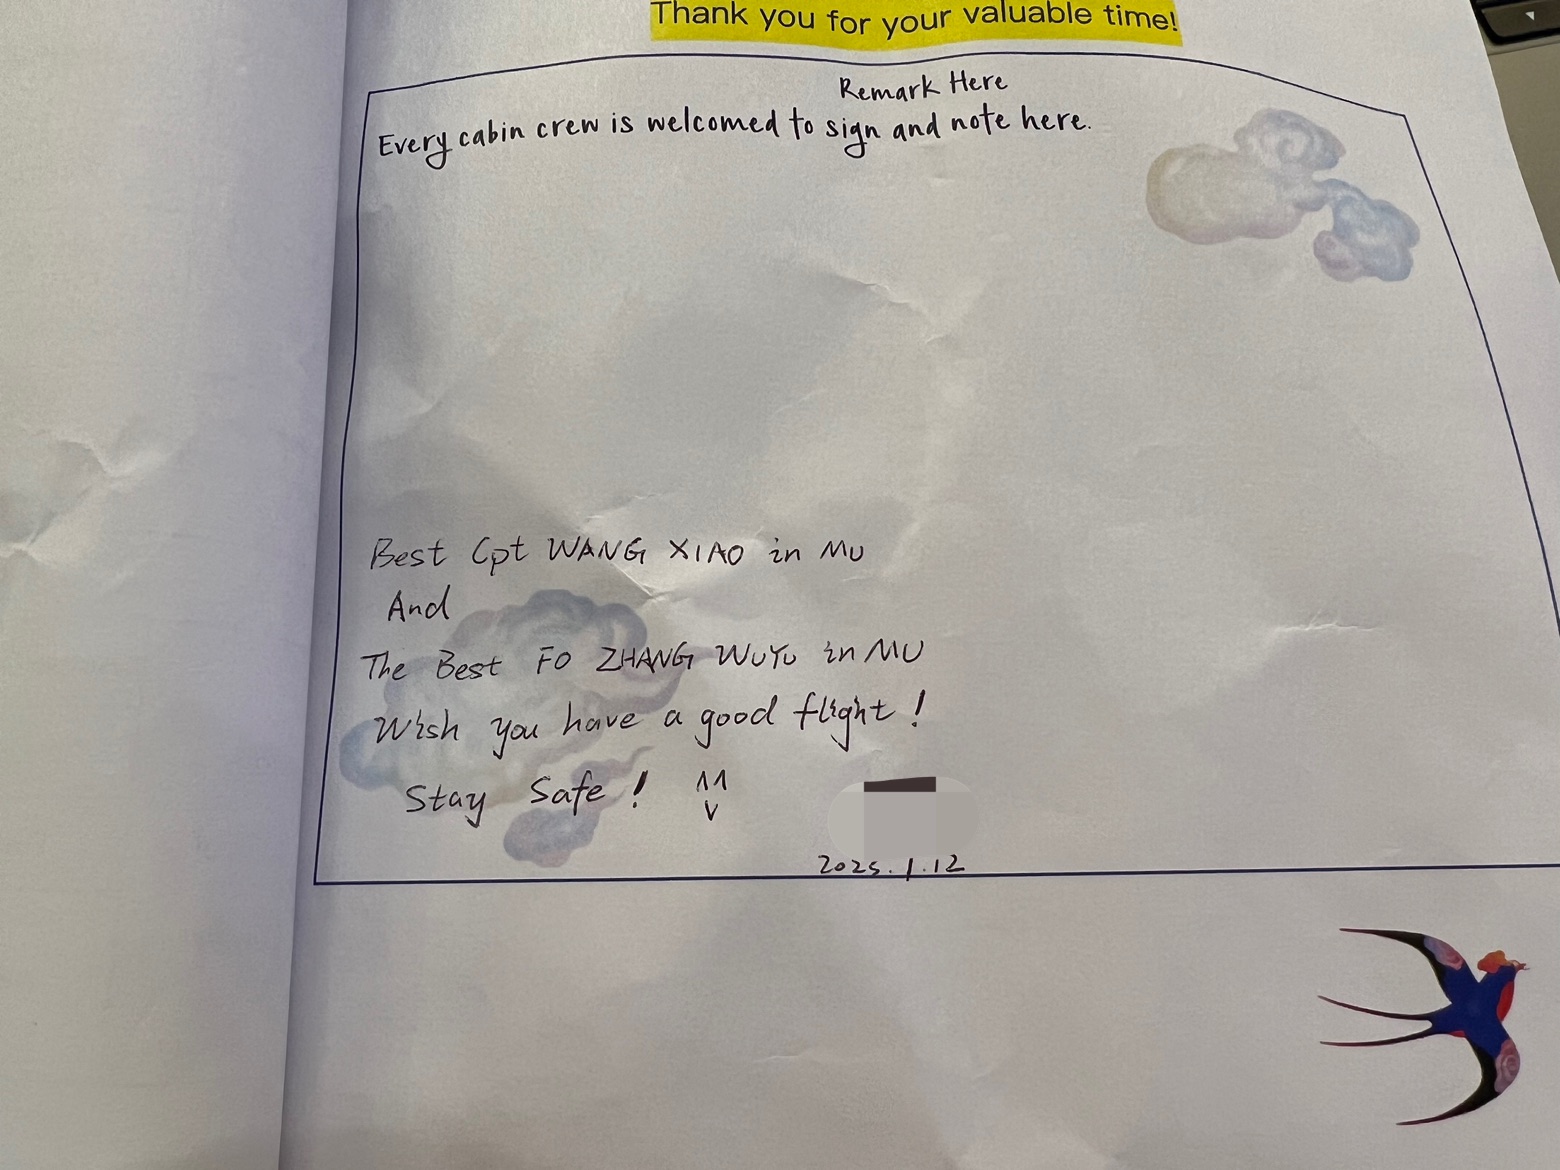 Thank you for your valuable time!
Remark Here
Every cabin crew is welcomed to sign and note here.
Best Cpt WANG XIAO in MU
And
The Best FO ZHANG WUYU in MU
Wish you have a good flight!
Stay Safe!
2025.1.12